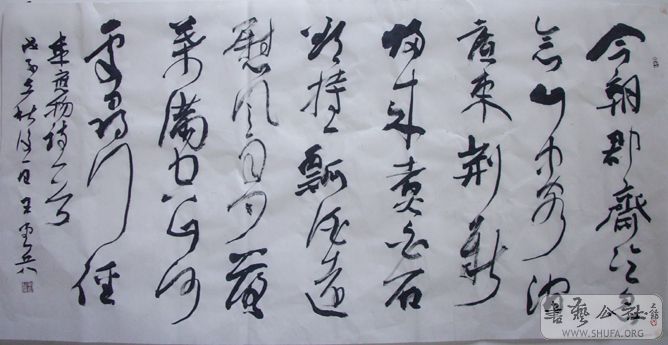 今朝郡齋冷忽
念山中客澗
底束荆薪
歸來煮白石
欲持一瓢酒遠
慰風雨夕落
葉滿空山何
處尋行迹
韋應物詩一首
戊子立秋後一日 王
書藝公社
WWW.SHUFA.ORG